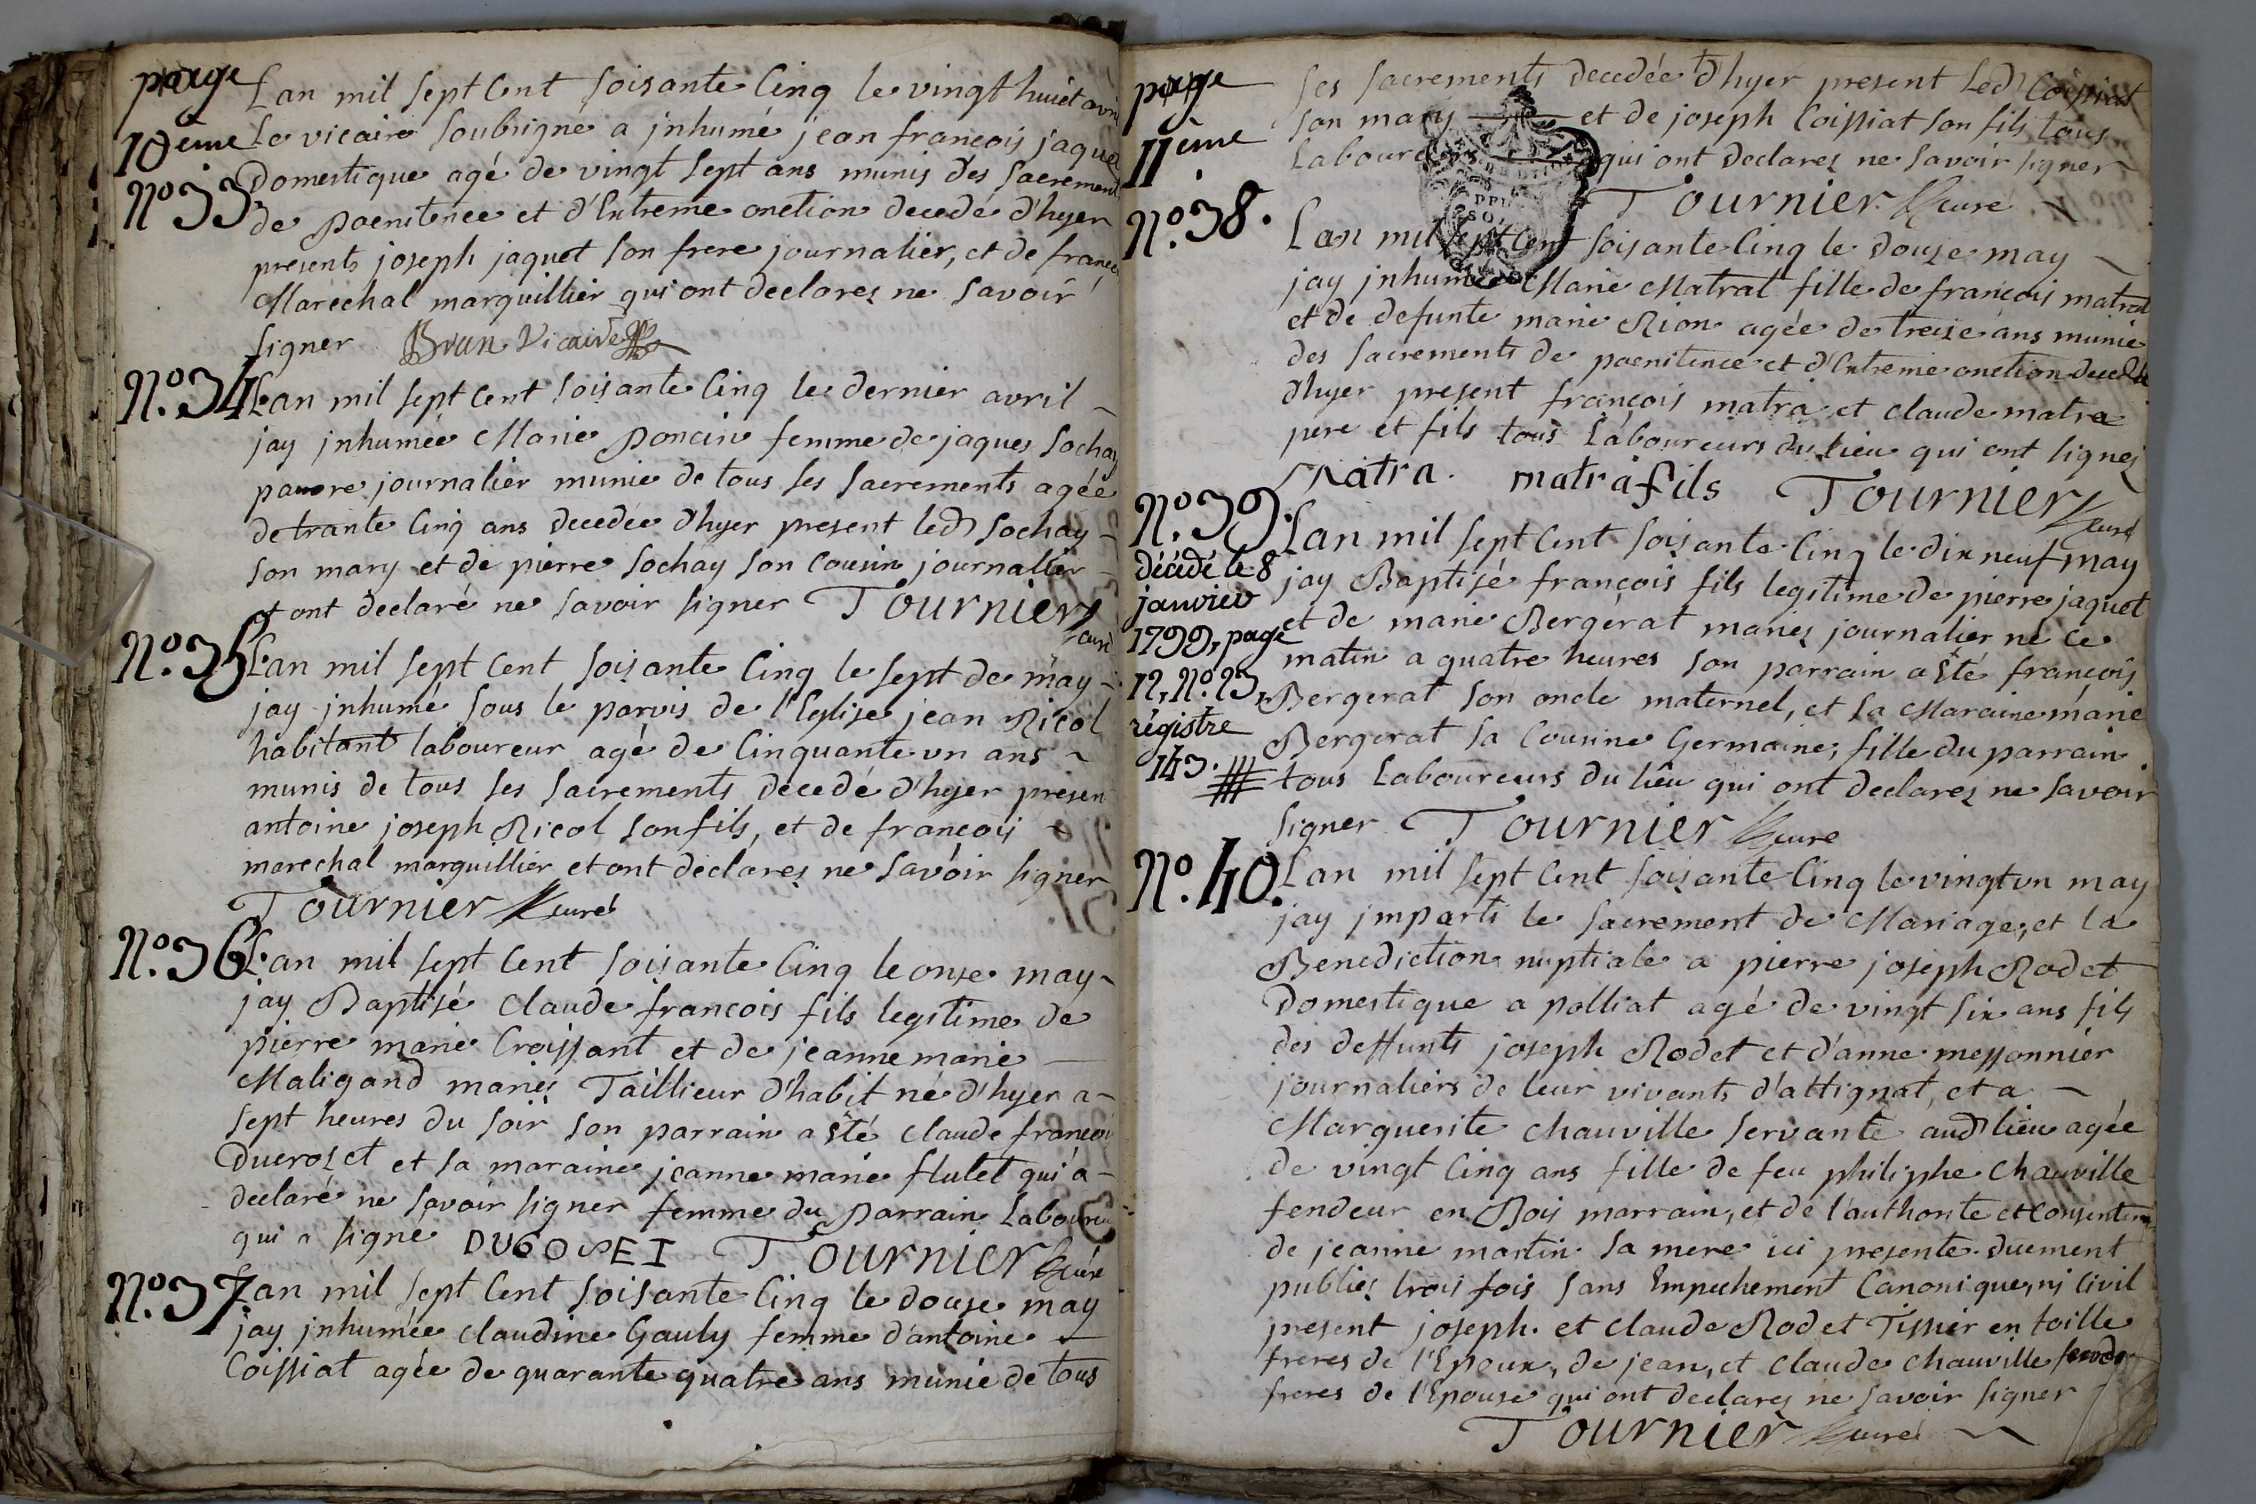 page
10ème
N.º 33.
Lan mil sept Cent soisante Cinq le vingt huict avri
Le vicaire soubsigné a jnhumé jean francois jaquet
Domestique agé de vingt sept ans munis des sacrement
de poenitence et d'Extreme onction decedé d'hyer
presents joseph jaquet son frere journalier, et de francoi
Marechal marguillier qui ont declarez ne savoir
signer Brun Vicaire
N.º 34.
Lan mil sept Cent soisante Cinq le dernier avril
jay jnhumée Marie Poncin femme de jaques sochay
pauvre journalier munie de tous ses sacrements agée
de trante Cinq ans decedée d'hyer present led sochay
son mary et de pierre sochay son Cousin journalier
et ont declaré ne savoir signer Tournier Curé
N.º 35.
Lan mil sept Cent soisante Cinq le sept de may
jay jnhumé sous le parvis de l'Eglise jean Ricol
habitant laboureur agé de Cinquante un ans
munis de tous ses sacrements decedé d'hyer presen
antoine joseph Ricol son fils, et de francois
marechal marguillier et ont declarez ne savoir signer
Tournier Curé
N.º 36.
Lan mil sept Cent soisante Cinq le onse may
jay Baptisé Claude francois fils legitime de
pierre marie Croissant et de jeanne marie
Maligand mariez Taillieur d'habit né d'hyer a
sept heures du soir son parrain a Esté Claude francoi
Ducroset et sa maraine jeanne marie flutet qui a
declaré ne savoir signer femme du Parrain Laboureu
qui a signé DUCOSEI Tournier Curé
N.º 37.
Lan mil sept Cent soisante Cinq le douse may
jay jnhumée claudine Gauly femme d'antoine
Coissiat agée de quarante quatre ans munie de tous
page
11ème
ses sacrements decedée d'hyer present led Coissiat
son mary et de joseph Coissiat son fils tous
Laboureurs qui ont declarez ne savoir signer
Tournier Curé
N.º 38.
Lan mil sept Cent soisante Cinq le douse may
jay jnhumée Marie Matrat fille de francois matrat
et de defunte marie Rion agée de treise ans munie
des sacrements de poenitence et d'Extreme onction decedée
d'hyer present francois matra et claude matra
pere et fils tous Laboureurs du lieu qui ont signez
Matra. matra fils Tournier Curé
N.º 39.
décédé le 8
janvier
1799, page
12, N.º 23,
régistre
143.
Lan mil sept Cent soisante Cinq le dix neuf may
jay Baptisé francois fils legitime de pierre jaquet
et de marie Bergerat mariez journalier né ce
matin a quatre heures son parrain a Esté francois
Bergerat son oncle maternel, et sa Maraine marie
Bergerat sa Cousine Germaine, fille du parrain
tous Laboureurs du lieu qui ont declarez ne savoir
signer Tournier Curé
N.º 40.
Lan mil sept Cent soisante Cinq le vingt un may
jay jmparti le sacrement de Mariage, et la
Benediction nuptiale a pierre joseph Rodet
Domestique a polliat agé de vingt six ans fils
des deffunts joseph Rodet et d'anne messonnier
journaliers de leur vivants d'attignat, et a
Marguerite Chauville servante aud lieu agée
de vingt Cinq ans fille de feu philiphe Chauville
fendeur en Bois marrain, et de l'authorite et Consentem
de jeanne martin sa mere ici presente duement
publiez trois fois sans Empechement Canonique, nj Civil
present joseph et claude Rodet Tissier en toille
freres de l'Epoux, de jean, et claude Chauville
freres de l'Epouse qui ont declarez ne savoir signer
Tournier Curé